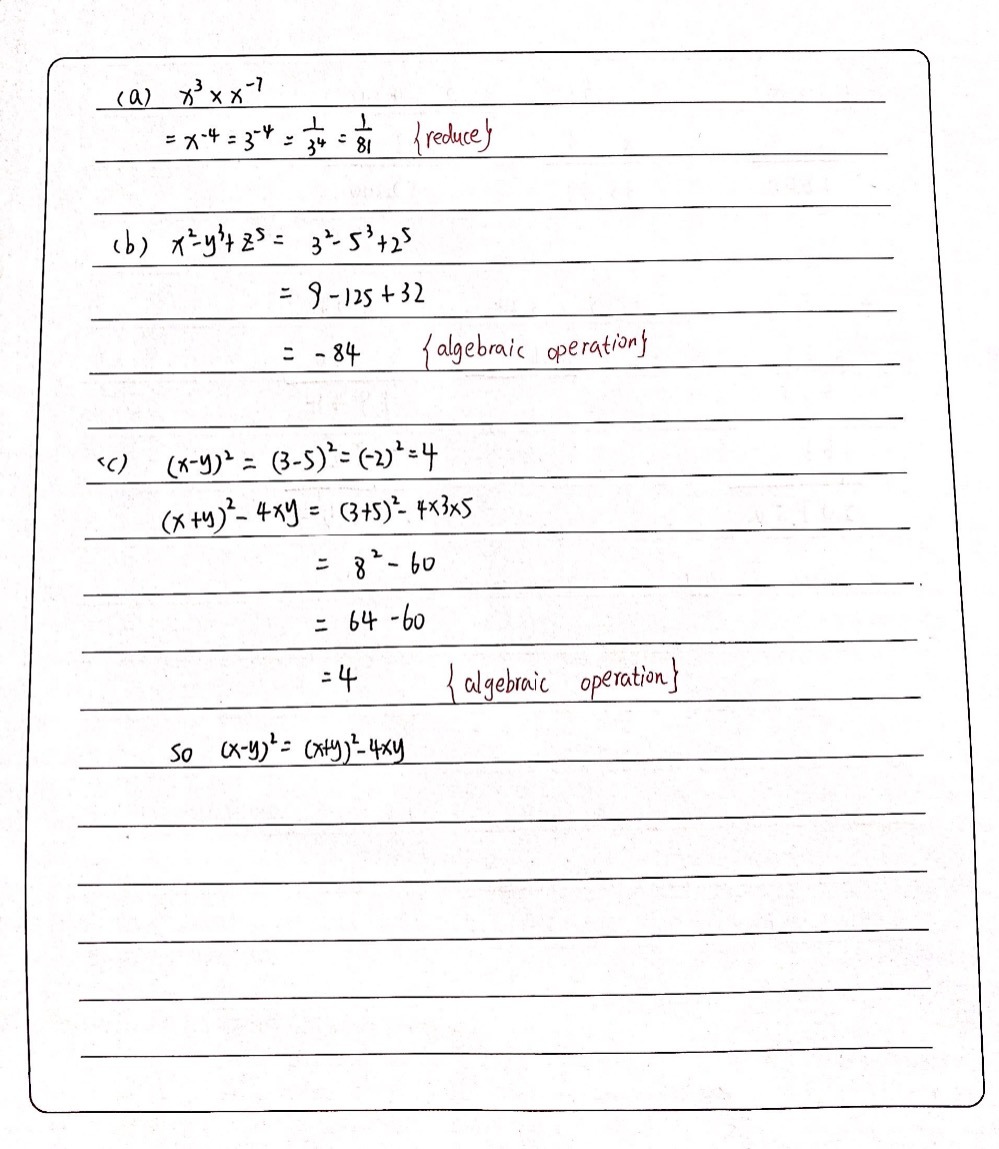 (a) x³ × x⁻⁷
= x⁻⁴ = 3⁻⁴ = 1/3⁴ = 1/81 {reduce}
(b) x²-y³+z⁵ = 3²-5³+2⁵
= 9-125+32
= -84 {algebraic operation}
(c) (x-y)² = (3-5)² = (-2)² = 4
(x+y)²-4xy = (3+5)²-4×3×5
= 8²-60
= 64-60
= 4 {algebraic operation}
So (x-y)² = (x+y)²-4xy